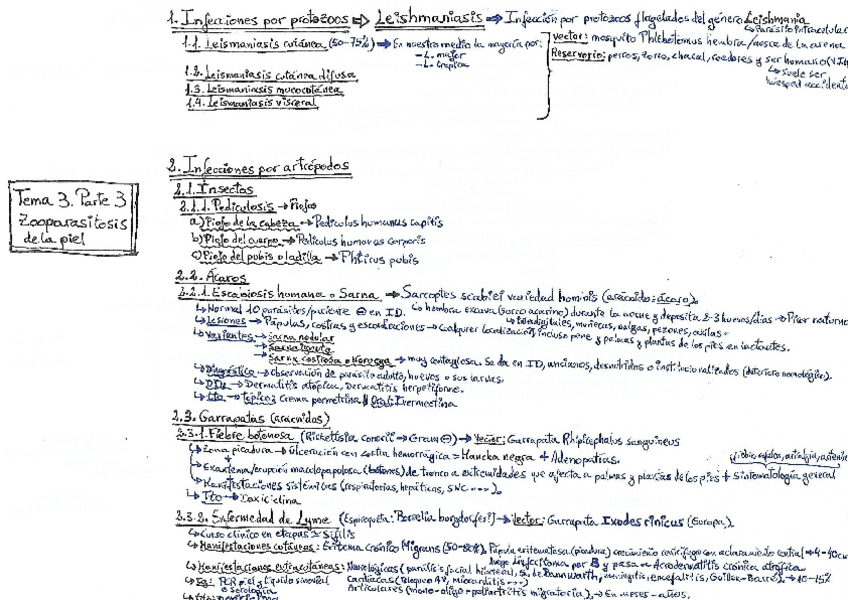 1. Infecciones por protozoos ⇒ Leishmaniasis ⇒ Infección por protozoos flagelados del género Leishmania
↳ Parásito intracelular
1.1. Leismaniasis cutánea (50-75%) → En nuestro medio la mayoría por:
- L. major
- L. tropica
vector: mosquito Phlebotomus hembra/mosca de la arena
Reservorio: perros, zorro, chacal, roedores y ser humano (VIH)
↳ Suele ser
huésped accidental
1.2. Leismaniasis cutánea difusa
1.3. Leismaniasis mucocutánea
1.4. Leismaniasis visceral
Tema 3. Parte 3
Zooparasitosis
de la piel
2. Infecciones por artrópodos
2.1. Insectos
2.1.1. Pediculosis → Piojos
a) Piojo de la cabeza → Pediculus humanus capitis
b) Piojo del cuerpo → Pediculus humanus corporis
c) Piojo del pubis o ladilla → Phtirus pubis
2.2. Ácaros
2.2.1. Escabiosis humana o Sarna → Sarcoptes scabiei variedad hominis (arácnido: ácaro).
↳ Normal 10 parásitos/paciente ⊖ en ID. ↳ hembra excava (surco acarino) durante la noche y deposita 2-3 huevos/días → Picor nocturno
↳ Interdigitales, muñecas, nalgas, pezones, axilas
↳ Lesiones → Pápulas, costras y escoriaciones → Cualquier localización incluso pene y palmas y plantas de los pies en lactantes.
↳ Variantes → Sarna nodular
→ Sarna costrosa o Noruega → muy contagiosa. Se da en ID, ancianos, desnutridos o institucionalizados (deterioro neurológico).
↳ Diagnóstico → Observación de parásito adulto, huevos o sus larvas.
↳ DD → Dermatitis atópica, Dermatitis herpetiforme.
↳ Tto → tópico: Crema permetrina || Oral: Ivermectina
2.3. Garrapatas (arácnidos)
2.3.1. Fiebre botonosa (Rickettsia conorii → Gram ⊖) → Vector: Garrapata Rhipicephalus sanguineus
↳ Zona picadura → Ulceración con costra hemorrágica = Mancha negra + Adenopatías.
↳ Exantema/erupción maculopapulosa (botones) de tronco a extremidades que afecta a palmas y plantas de los pies + Sistomatología general
↳ Manifestaciones sistémicas (respiratorias, hepáticas, SNC ....).
↳ Tto → Doxiciclina
2.3.2. Enfermedad de Lyme (Espiroqueta: Borrelia burgdorferi) → Vector: Garrapata Ixodes ricinus (Europa).
↳ Curso clínico en etapas ≃ Sífilis
↳ Manifestaciones cutáneas: Eritema Crónico Migrans (50-80%). Pápula eritematosa (picadura) crecimiento centrífugo con aclaramiento central → 4-40cm
luego
↳ Manifestaciones extracutáneas: Neurológicas (parálisis facial bilateral, S. de Bannwarth, meningitis, encefalitis, Guillen-Barré) → 10-15%
Cardíacas (Bloqueo AV, Miocarditis ...)
Articulares (mono-oligo-poliartritis migratoria). → En meses-años.
PCR piel y líquido sinovial
o serología